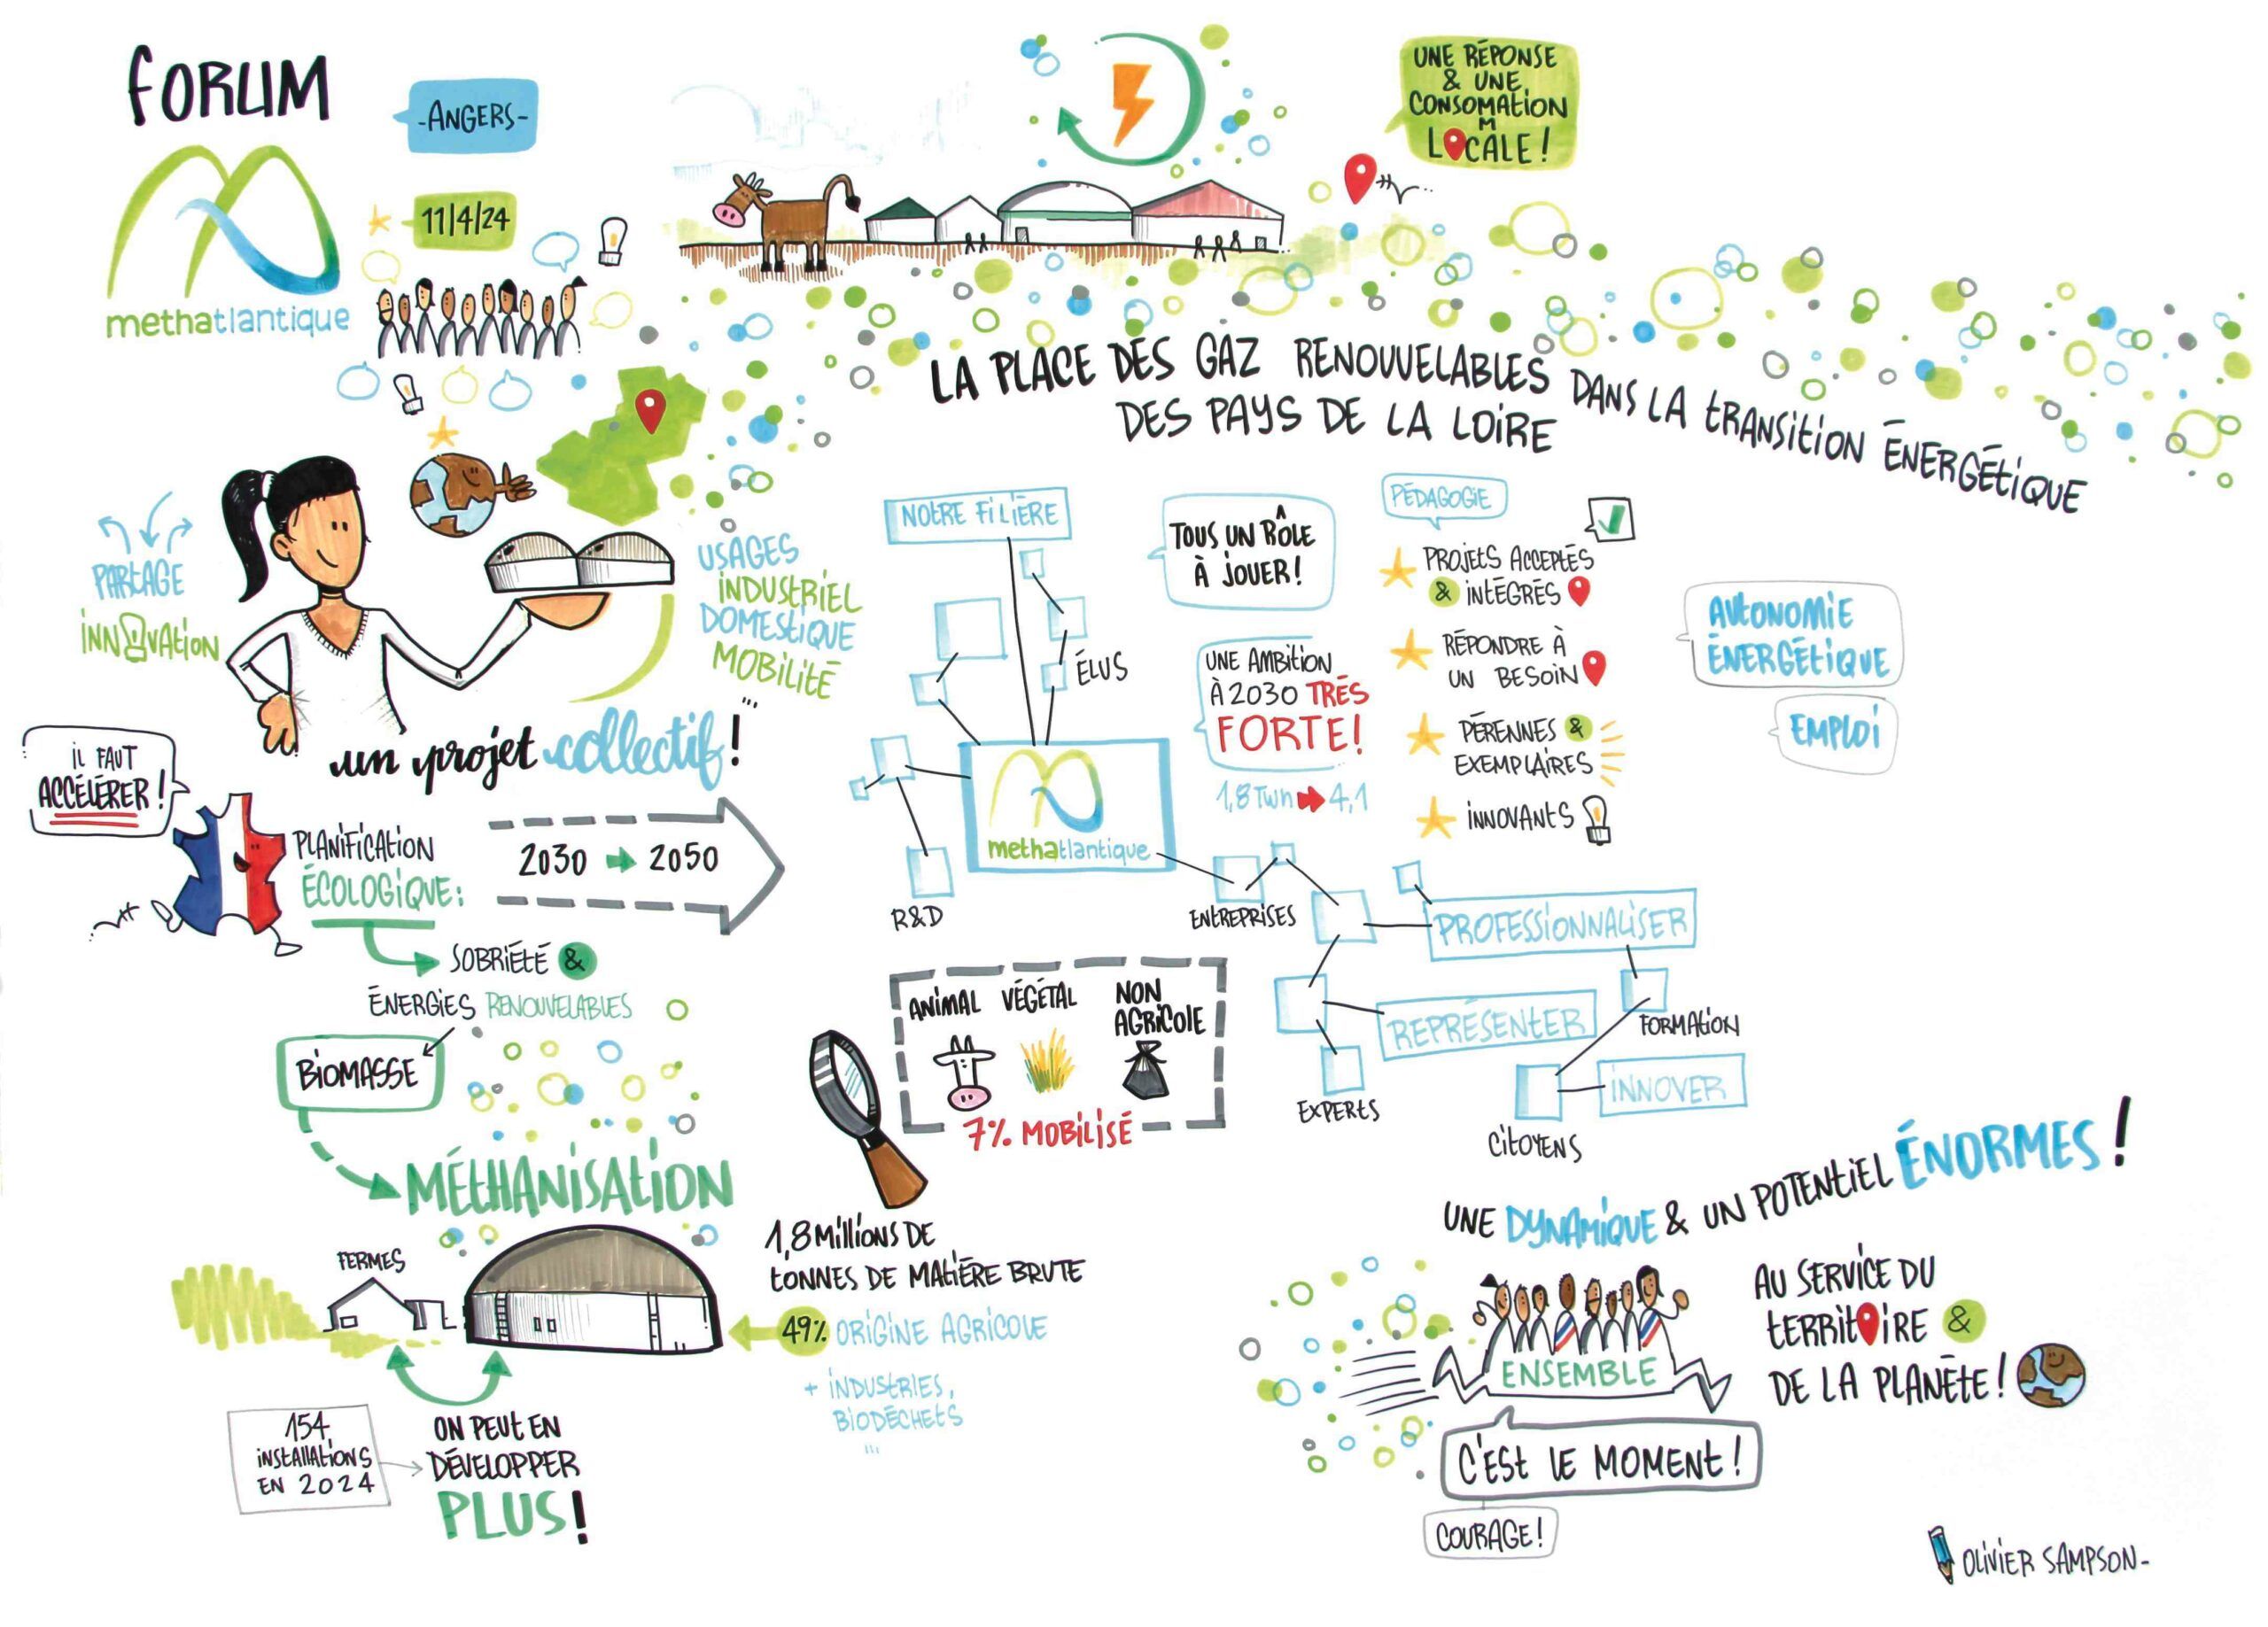 FORUM
-ANGERS-
methatlantique
11|4|24
UNE RÉPONSE
& UNE
CONSOMATION
M
LOCALE !
LA PLACE DES GAZ RENOUVELABLES DANS LA TRANSITION ÉNERGÉTIQUE
DES PAYS DE LA LOIRE
PARTAGE
INNOVATION
USAGES
INDUSTRIEL
DOMESTIQUE
MOBILITÉ
...
un projet collectif !
IL FAUT
ACCÉLÉRER !
PLANIFICATION
ÉCOLOGIQUE :
2030 → 2050
SOBRIÉTÉ &
ÉNERGIES RENOUVELABLES
BIOMASSE
MÉTHANISATION
FERMES
154
INSTALLATIONS
EN 2024
ON PEUT EN
DÉVELOPPER
PLUS !
NOTRE FILIÈRE
ÉLUS
methatlantique
R&D
ENTREPRISES
EXPERTS
PROFESSIONNALISER
REPRÉSENTER
FORMATION
INNOVER
CITOYENS
TOUS UN RÔLE
À JOUER !
UNE AMBITION
À 2030 TRÉS
FORTE !
1,8 TWh → 4,1
PÉDAGOGIE
PROJETS ACCEPTÉS
& INTÉGRÉS
RÉPONDRE À
UN BESOIN
PÉRENNES &
EXEMPLAIRES
INNOVANTS
AUTONOMIE
ÉNERGÉTIQUE
EMPLOI
ANIMAL VÉGÉTAL NON
AGRICOLE
7% MOBILISÉ
1,8 MILLIONS DE
TONNES DE MATIÈRE BRUTE
49% ORIGINE AGRICOLE
+ INDUSTRIES,
BIODÉCHETS
...
UNE DYNAMIQUE & UN POTENTIEL ÉNORMES !
ENSEMBLE
AU SERVICE DU
TERRITOIRE &
DE LA PLANÈTE !
C'EST LE MOMENT !
COURAGE !
OLIVIER SAMPSON-